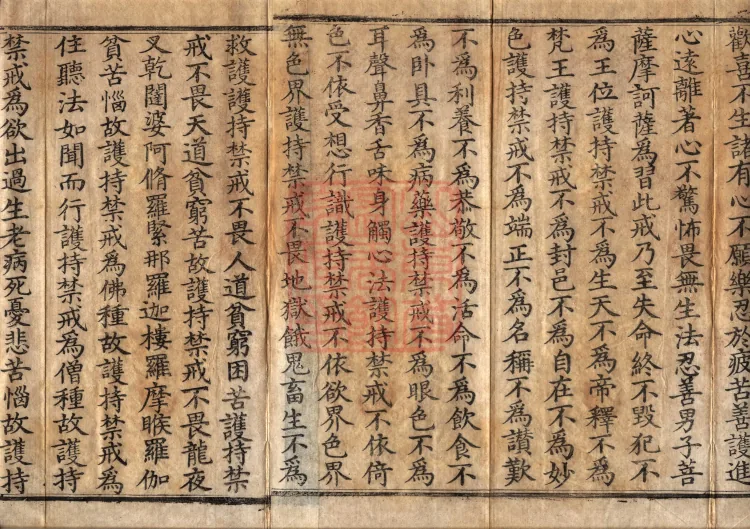 歡喜不生諸有心不願樂忍於疲苦善護進
心遠離著心不驚怖畏無生法忍善男子菩
薩摩訶薩為習此戒乃至失命終不毀犯不
為王位護持禁戒不為生天不為帝釋不為
梵王護持禁戒不為封邑不為自在不為妙
色護持禁戒不為端正不為名稱不為讃歎
不為利養不為恭敬不為活命不為飲食不
為卧具不為病藥護持禁戒不為眼色不為
耳聲鼻香舌味身觸心法護持禁戒不依倚
色不依受想行識護持禁戒不依欲界色界
無色界護持禁戒不畏地獄餓鬼畜生不為
救護護持禁戒不畏人道貧窮困苦護持禁
戒不畏天道貧窮苦故護持禁戒不畏龍夜
叉乾闥婆阿脩羅緊那羅迦樓羅摩睺羅伽
貧苦惱故護持禁戒為佛種故護持禁戒為
住聽法如聞而行護持禁戒為僧種故護持
禁戒為欲出過生老病死憂悲苦惱故護持